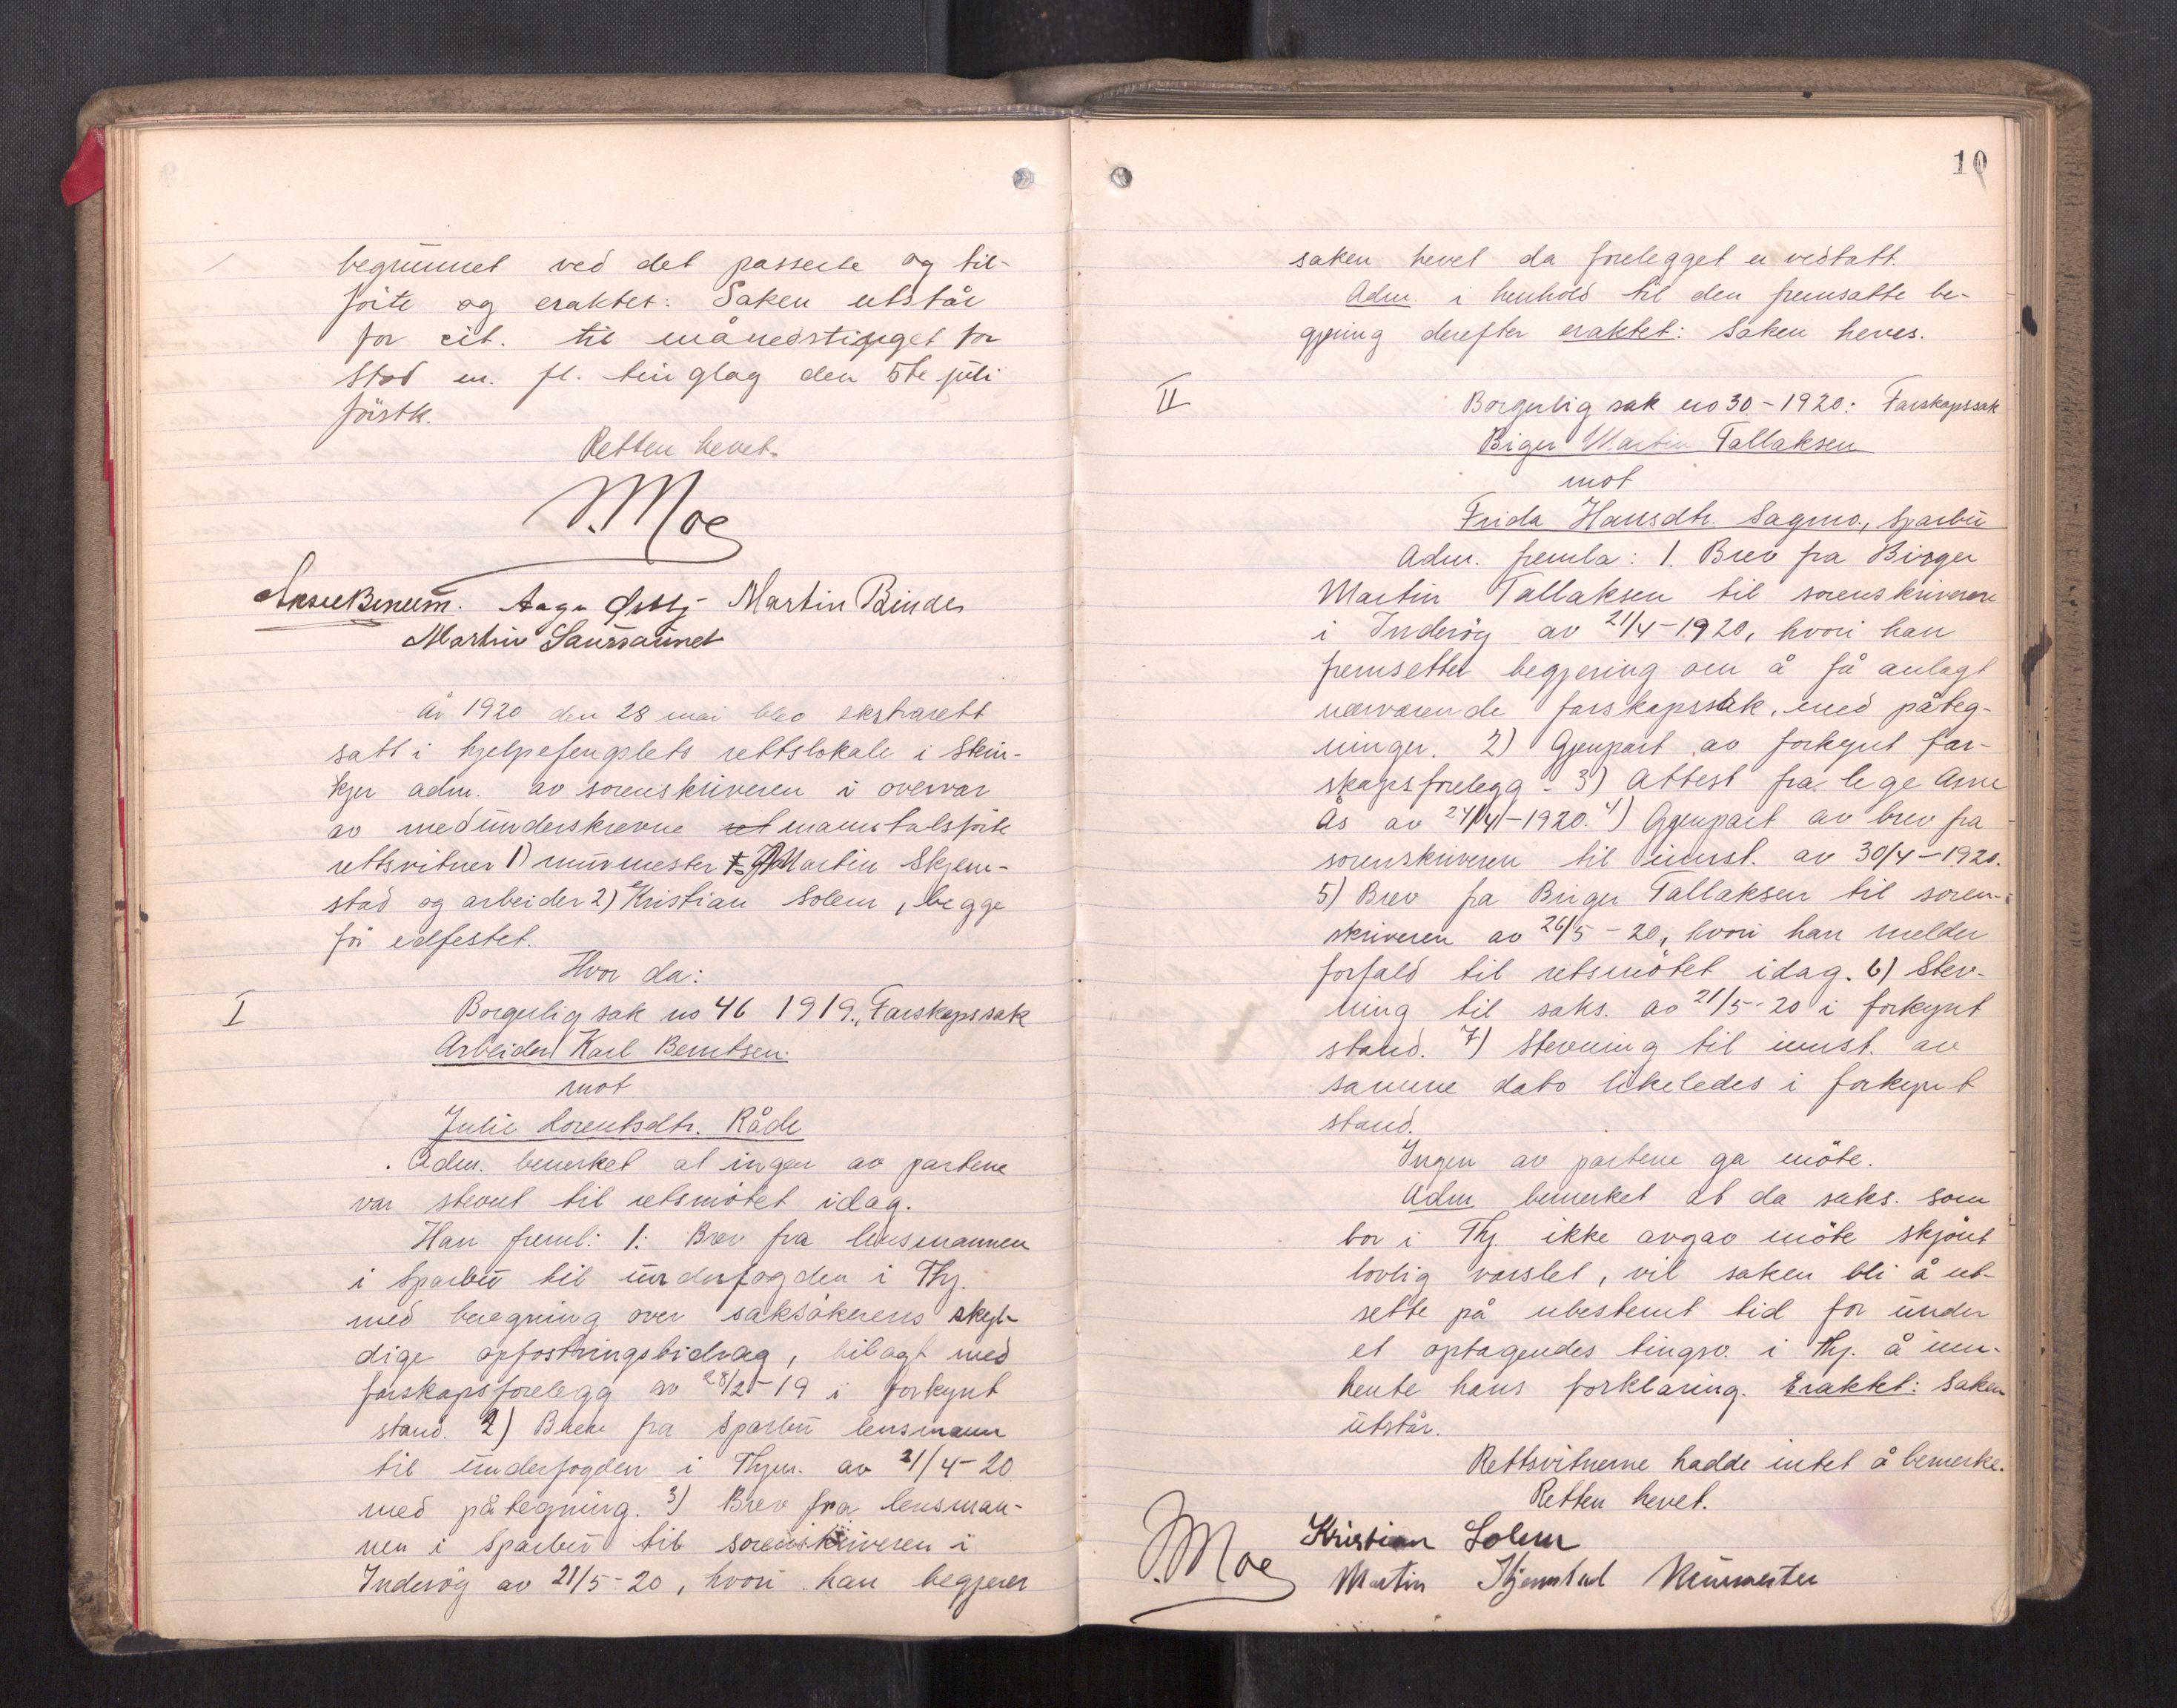 begrunnet ved det passerte og til-
förte og eraktet: Saken utstår
for cit. til månedstinget for
Stod m. fl. tinglag den 5te juli
förstk.
Retten hevet.
J. Moe
Martin Binde
Martin Saursaunet
År 1920 den 28 mai blev ekstrarett
satt i hjelpefengslets rettslokale i Stein-
kjer adm. av sorenskriveren i overvær
av medunderskrevne ret mannstalsförte
rettsvitner 1) murmester Martin Skjem-
stad og arbeider 2) Kristian Solem, begge
för edfestet.
Hvor da:
I
Borgerlig sak no 46 1919., Farskapssak
Arbeider Karl Berntsen
mot
Julie Lorentsdtr. Råde
Adm. bemerket at ingen av partene
var stevnt til retsmötet idag.
Han freml: 1: Brev fra lensmannen
i Sparbu til underfogden i Thj.
med beregning over saksökerens skyl-
dige opfostringsbidrag, bilagt med
farskapsforelegg av 28/2-19 i forkynt
stand. 2) Brev fra Sparbu lensmann
til underfogden i Thjm. av 21/4-20
med påtegning. 3) Brev fra lensman-
nen i Sparbu til sorenskriveren i
Inderöy av 21/5-20, hvori han begjerer
10
saken hevet da forelegget er vedtatt.
Adm. i henhold til den fremsatte be-
gjæring derefter eraktet: Saken heves.
II
Borgerlig sak no 30-1920: Farskapssak
Biger Martin Tallaksen
mot
Frida Hansdtr. Sagmo, Sparbu
Adm. fremla: 1. Brev fra Birger
Martin Tallaksen til sorenskriveren
i Inderöy av 21/4-1920, hvori han
fremsetter begjering om å få anlagt
nærværende farskapssak, med påteg-
ninger. 2) Gjenpart av forkynt far-
skapsforelegg. 3) Attest fra lege Arne
Ås av 24/4-1920. 4) Gjenpart av brev fra
sorenskriveren til innst. av 30/4-1920.
5) Brev fra Birger Tallaksen til soren-
skriveren av 26/5-20, hvori han melder
forfald til retsmötet idag. 6) Stev-
ning til saks. av 21/5-20 i forkynt
stand. 7) Stevning til innst. av
samme dato likeledes i forkynt
stand.
Ingen av partene ga möte.
Adm bemerket at da saks. som
bor i Thj ikke avgav möte skjönt
lovlig varslet, vil saken bli å ut-
sette på ubestemt tid for under
et optagendes tingsv. i Thj. å inn-
hente hans forklaring. Eraktet: Saken
utstår.
Rettsvitnerne hadde intet å bemerke.
Retten hevet.
J. Moe
Kristian Solem
Martin Skjemstad Murmester